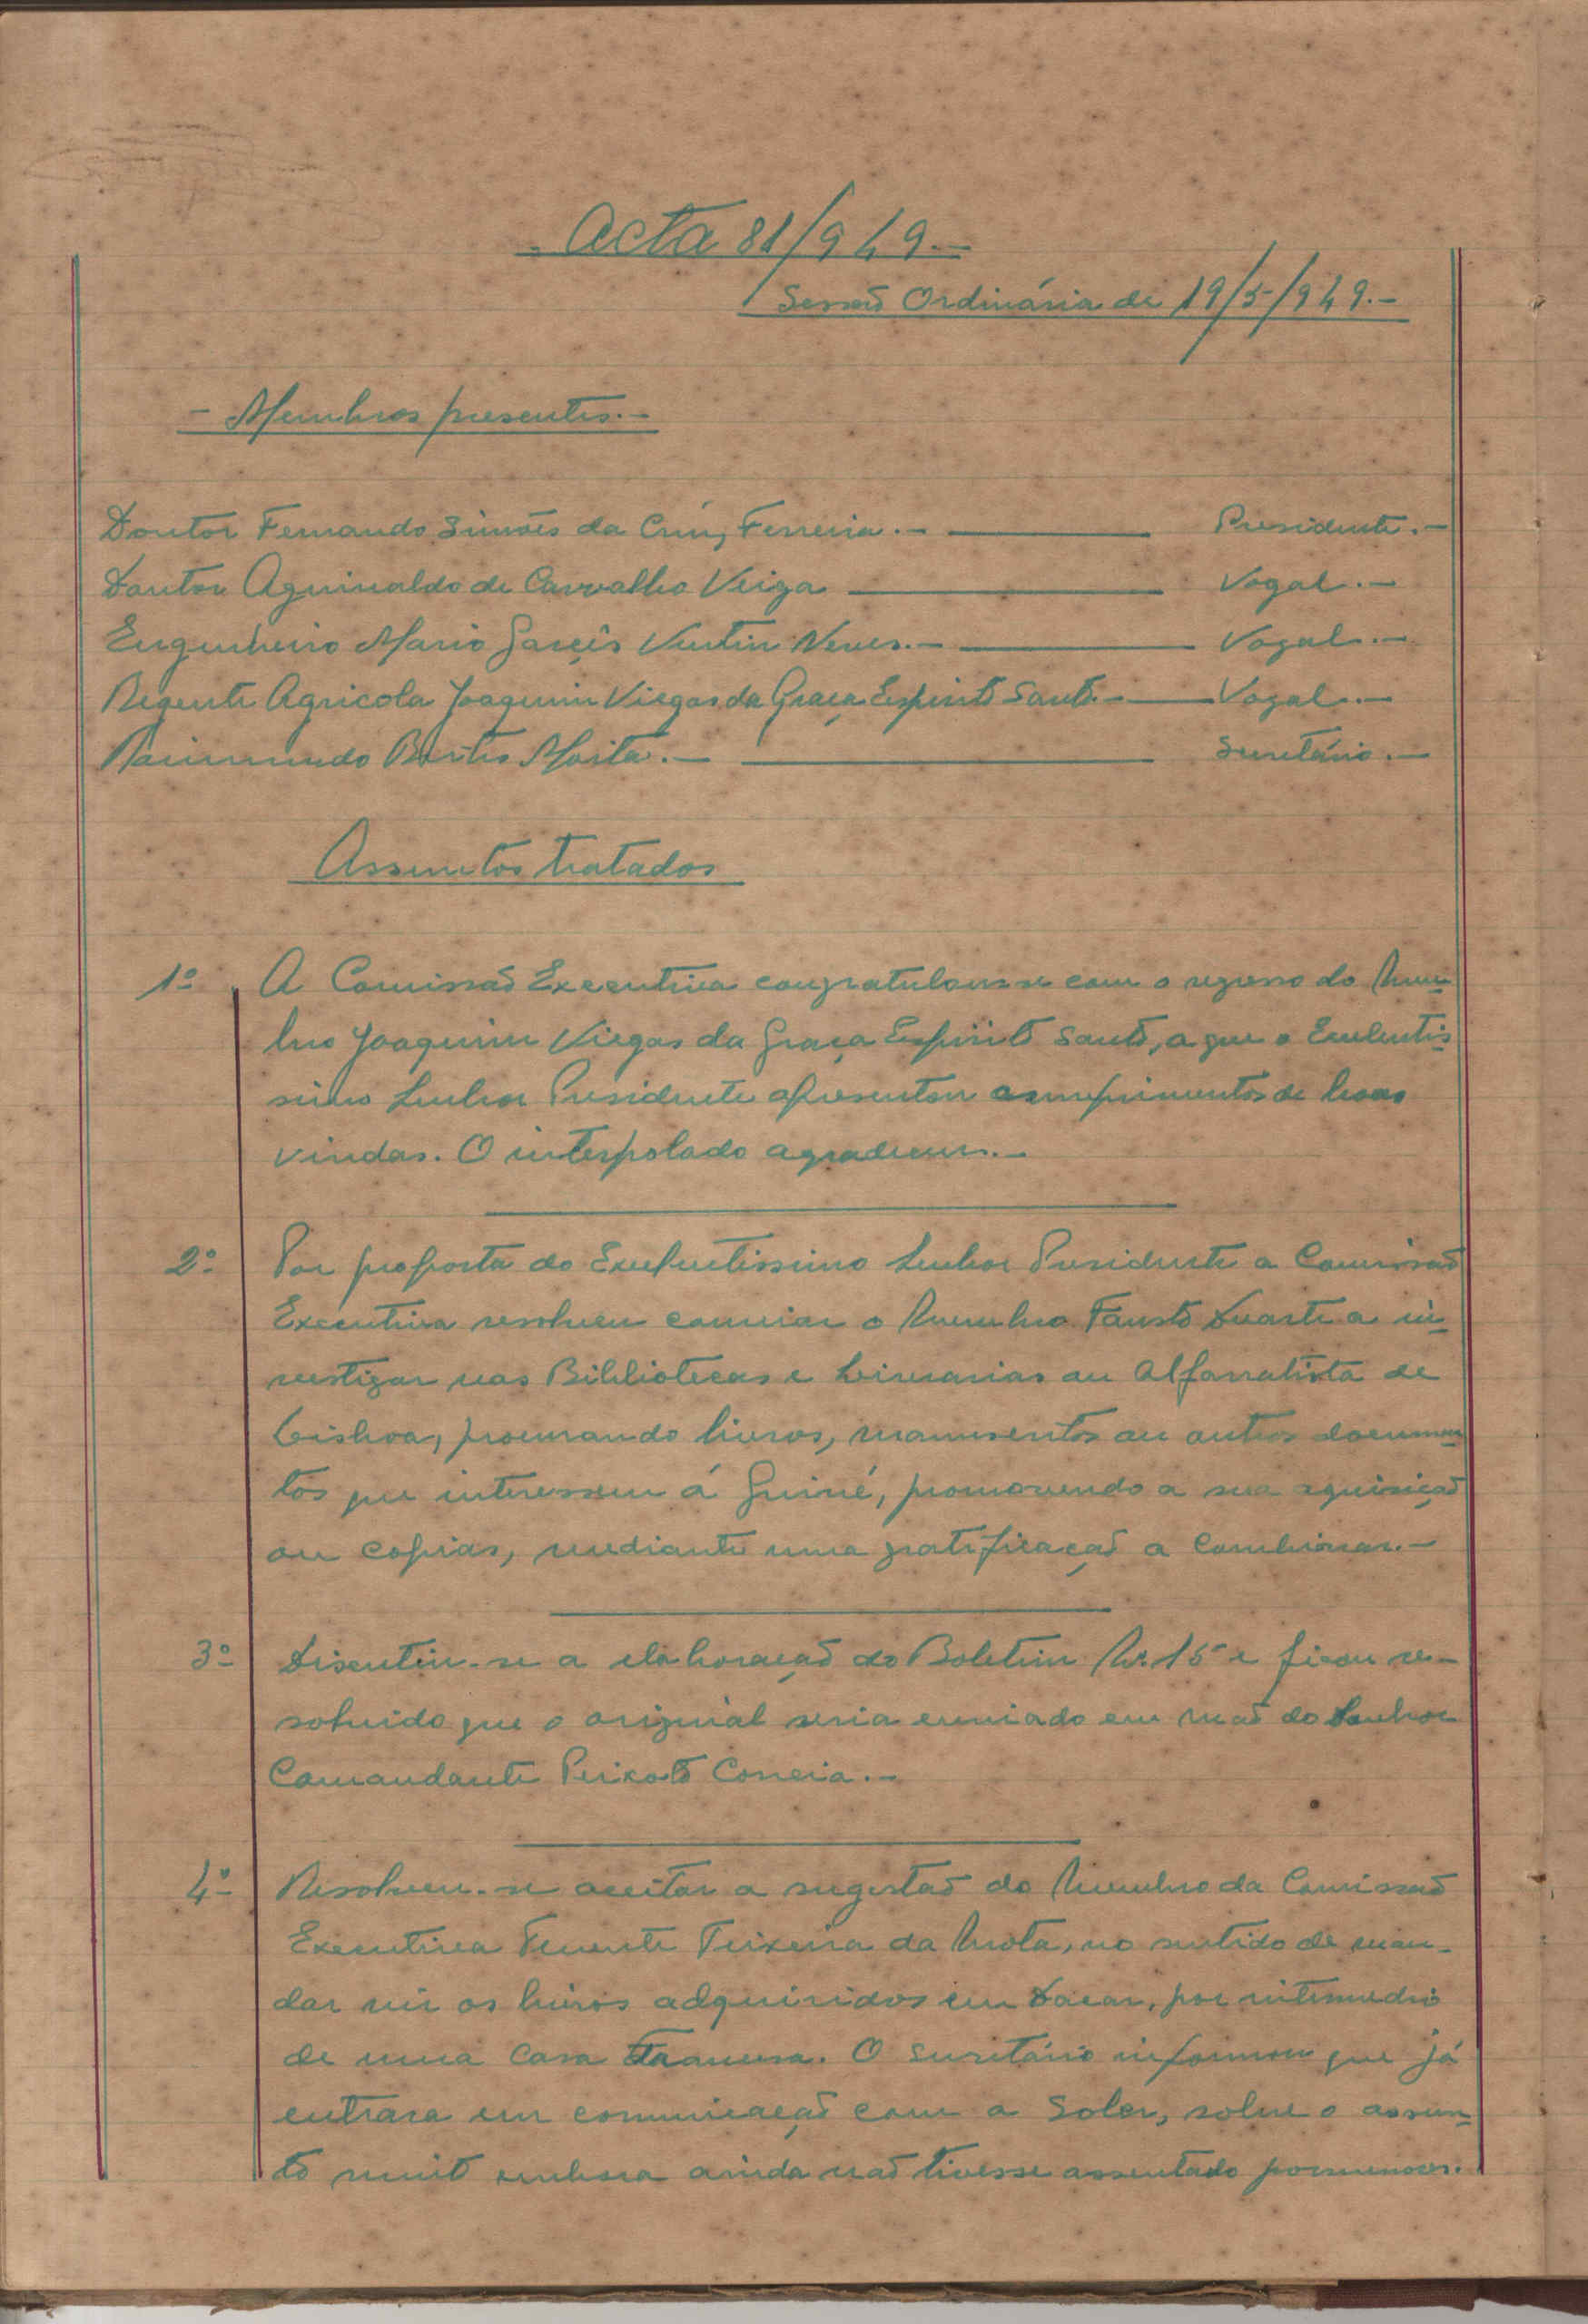 - Acta 81/949.-
Sessão Ordinária de 19/5/949.-
- Membros presentes.-
Doutor Fernando Simões da Cruz Ferreira.- Presidente.-
Doutor Aguinaldo de Carvalho Veiga Vogal.-
Engenheiro Mario Garcês Ventin Neves.- Vogal.-
Regente Agricola Joaquim Viegas da Graça Espirito Santo.- Vogal.-
Raimundo Maita.- Secretário.-
Assuntos tratados
1º A Comissão Executiva congratulou-se com o regresso do Mem-
bro Joaquim Viegas da Graça Espirito Santo, a que o Excelentis-
simo Senhor Presidente apresentou cumprimentos de boas
vindas. O interpolado agradeceu.-
2º Por proposta do Excelentissimo Senhor Presidente a Comissão
Executiva resolveu convidar o Membro Fausto Duarte a in-
vestigar nas Bibliotecas e Livrarias ou Alfarrabista de
Lisboa, procurando livros, manuscritos ou outros documen-
tos que interessem á Guiné, promovendo a sua aquisição
ou copias, mediante uma gratificação a combinar.-
3º Discutiu-se a elaboração do Boletim Nº 15 e ficou re-
solvido que o original seria enviado em mão do Senhor
Comandante Peixoto Correia.-
4º Resolveu-se aceitar a sugestão do Membro da Comissão
Executiva Tenente Teixeira da Mota, no sentido de man-
dar vir os livros adquiridos em Dacar, por intermedio
de uma casa francesa. O Secretário informou que já
entrara em comunicação com a Soler, sobre o assun-
to muito embora ainda não tivesse assentado pormenores.